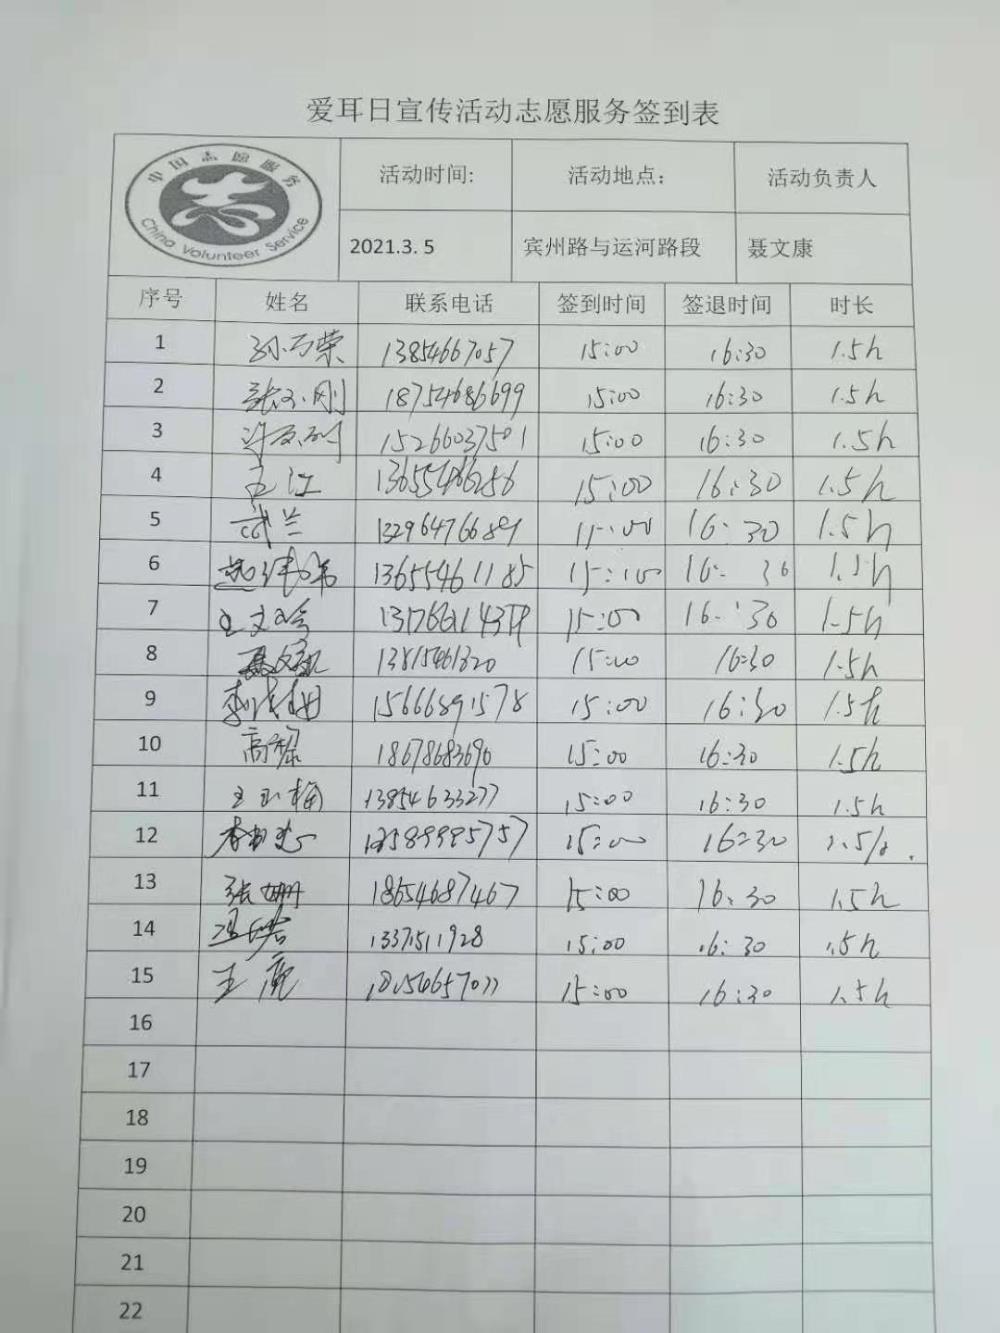 爱耳日宣传活动志愿服务签到表
中国志愿服务
China Volunteer Service
活动时间: 活动地点: 活动负责人
2021.3.5 宾州路与运河路段 聂文康
序号 姓名 联系电话 签到时间 签退时间 时长
1 13854667057 15:00 16:30 1.5h
2 张小刚 18754686699 15:00 16:30 1.5h
3 15266037501 15:00 16:30 1.5h
4 王江 15:00 16:30 1.5h
5 武兰 15:00 16:30 1.5h
6 13655461185 15:00 16:30 1.5h
7 15:00 16:30 1.5h
8 15:00 16:30 1.5h
9 15666891578 15:00 16:30 1.5h
10 18678683690 15:00 16:30 1.5h
11 王玉梅 13854633277 15:00 16:30 1.5h
12 15:00 16:30 1.5h
13 张姗 18654687467 15:00 16:30 1.5h
14 13371511928 15:00 16:30 1.5h
15 15:00 16:30 1.5h
16
17
18
19
20
21
22